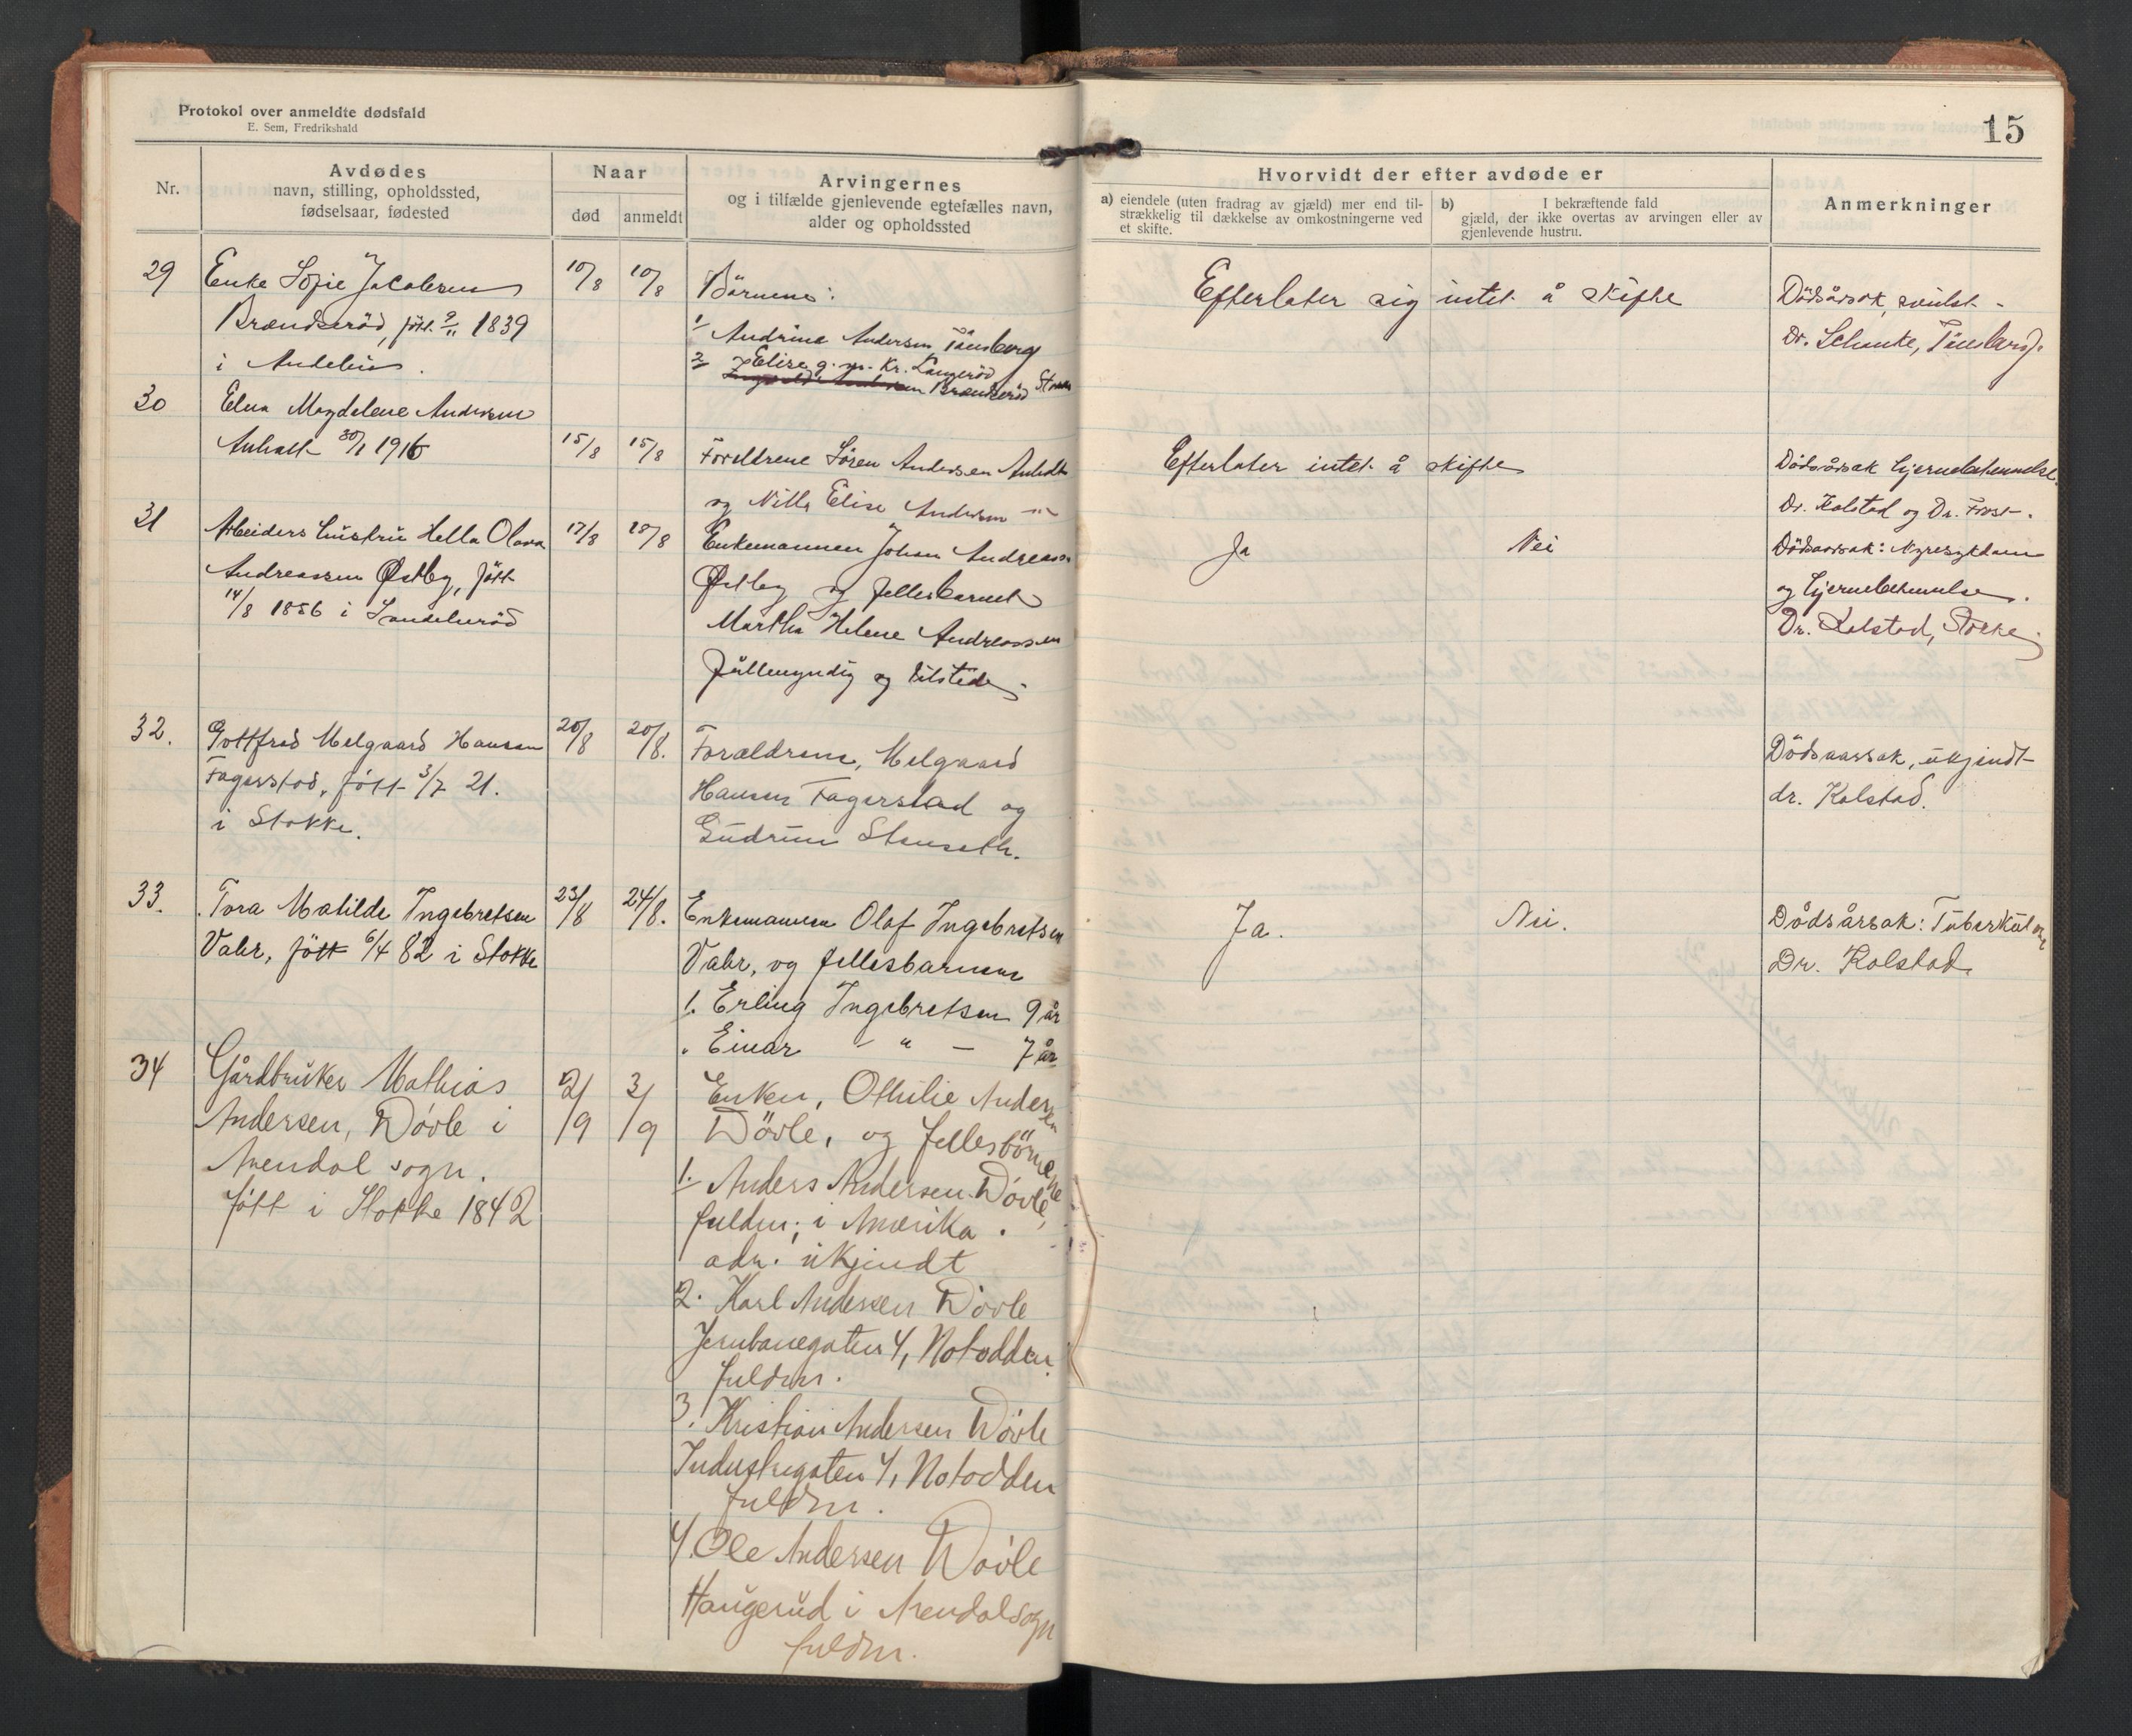 Protokol over anmeldte dødsfald
E. Sem, Fredrikshald
15
Nr.
Avdødes
navn, stilling, opholdssted,
fødselsaar, fødested
Naar
død
anmeldt
Arvingernes
og i tilfælde gjenlevende egtefælles navn,
alder og opholdssted
Hvorvidt der efter avdøde er
a) eiendele (uten fradrag av gjæld) mer end til-
strækkelig til dækkelse av omkostningerne ved
et skifte.
b) I bekræftende fald
gjæld, der ikke overtas av arvingen eller av
gjenlevende hustru.
Anmerkninger
29
Enke Sofie Jacobsen
Brændserød, født 9/11 1839
i Andebu.
10/8
10/8
Börnene:
1/ Andrine Andersen Tönsberg
2/ Elise g. m. Kr. Langeröd
Brændseröd
Efterlater sig intet å skifte
Dödsårsak, svulst -
Dr. Schanke, Tönsberg.
30
Elna Magdelene Andersen
Anholt 30/1 1916
15/8
15/8
Foreldrene Sören Andersen Anholt
og Nilla Elise Andersen
Efterlater intet å skifte
Dödsårsak hjernebetennelse.
Dr. Kolstad og Dr. Frost.
31
Arbeiders hustru Hella Olava
Andreassen Østby, født
14/8 1856 i Sandeherød
17/8
18/8
Enkemannen Johan Andreassen
Østby og fellesbarnet
Martha Helene Andreassen
fullmyndig og tilstede
Ja
Nei
Dödsaarsak: Nyresykdom
og hjernebetennelse.
Dr. Kolstad, Stokke
32.
Gottfred Melgaard Hansen
Fagerstad, født 3/7 21.
i Stokke.
20/8
20/8.
Forældrene, Melgaard
Hansen Fagerstad og
Gudrun Stenseth.
Dödsaarsak, ukjendt
dr. Kolstad.
33.
Tora Matilde Ingebretsen
Valør, født 6/4 82 i Stokke
23/8
24/8.
Enkemannen Olaf Ingebretsen
og fellesbarnene
1. Erling Ingebretsen 9 år
" Einar - " - 7 år
Ja.
Nei.
Dødsårsak: Tuberkulose
Dr. Kolstad.
34
Gårdbruker Mathias
Andersen, Døvle i
Arendal sogn.
født i Stokke 1842
2/9
3/9
Enken, Othilie Andersen
Døvle, og fellesbörnene
1. Anders Andersen Døvle,
fuldm; i Amerika.
adr. ukjendt
2. Karl Andersen Døvle
Jernbanegaten 4, Notodden
fuldm.
3. Kristian Andersen Døvle
Industrigaten 4, Notodden
fuldm.
4. Ole Andersen Døvle
Haugerud i Arendalsogn
fuldm.